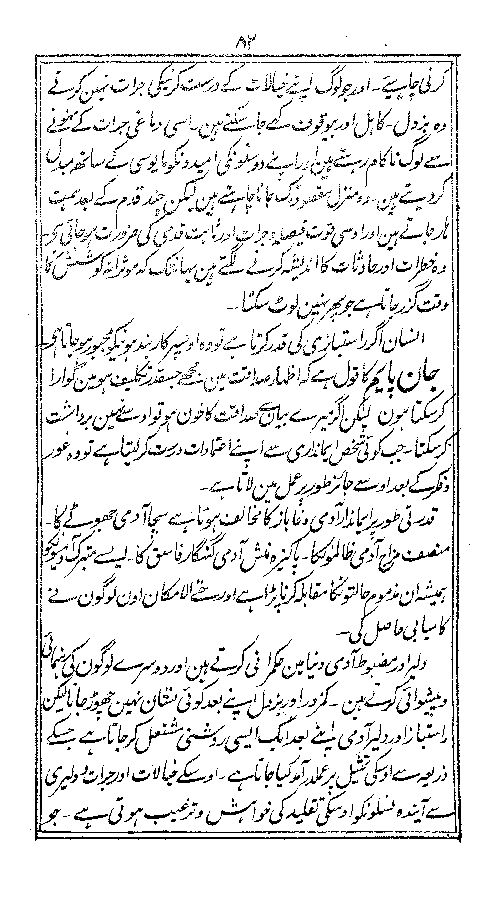 ۸۲
کرنی چاہیے۔ اور جو لوگ اپنے خیالات کے درست کرنیکی جرات نہین کرتے
وہ بزدل۔ کاہل اور بیوقوف کہے جا سکتے ہین۔ اسی دماغی جرات کے نہونے
سے لوگ ناکام رہتے ہین اور اپنے دوستونکی امیدونکو مایوسی کے ساتھ مبدل
کر دیتے ہین۔ وہ منزل مقصود تک جانا چاہتے ہین لیکن چند قدم کے بعد ہمت
ہار جاتے ہین اور اوسی قوت فیصلہ و جرات اور ثابت قدمی کی ضرورت پڑ جاتی ہی
وہ خطرات اور حادثات کا اندیشہ کرنے لگتے ہین یہانتک کہ موثرانہ کوشش کا
وقت گزر جاتا ہے جو پھر نہین لوٹ سکتا۔
انسان اگر راستبازی کی قدر کرتا ہے تو وہ اوسپر کاربند ہونیکو مجبور ہو جاتا ہی
جان پایم کا قول ہے کہ اظہار صداقت مین مجھے جسقدر تکلیف ہو مین گوارا
کر سکتا ہون لیکن اگر میرے بیان سے صداقت کا خون ہو تو اوسے مین برداشت
کر سکتا۔ جب کوئی شخص ایمانداری سے اپنے اعتقادات درست کر لیتا ہے تو وہ غور
و فکر کے بعد اوسے جائز طور پر عمل مین لاتا ہے۔
قدرتی طور پر ایماندار آدمی دغاباز کا مخالف ہوتا ہے سچا آدمی جھوٹے کا۔
منصف مزاج آدمی ظالمونکا۔ پاکیزہ منش آدمی گنہگار فاسق کا۔ ایسے متبرک آدمیونکو
ہمیشہ ان مذموم حالتونکا مقابلہ کرنا پڑا ہے اور حتے الامکان اون لوگون نے
کامیابی حاصل کی۔
دلیر اور مضبوط آدمی دنیا مین حکمرانی کرتے ہین اور دوسرے لوگون کی رہنمائی
و پیشوائی کرتے ہین۔ کمزور اور بزدل اپنے بعد کوئی نشان نہین چھوڑ جاتا لیکن
راستباز اور دلیر آدمی اپنے بعد ایک ایسی روشنی مشتعل کر جاتا ہے جسکے
ذریعہ سے اوسکی تمثیل پر عملدرآمد کیا جاتا ہے۔ اوسکے خیالات اور جرات و دلیری
سے آیندہ نسلونکو اوسکی تقلید کی خواہش و ترغیب ہوتی ہے۔ جو